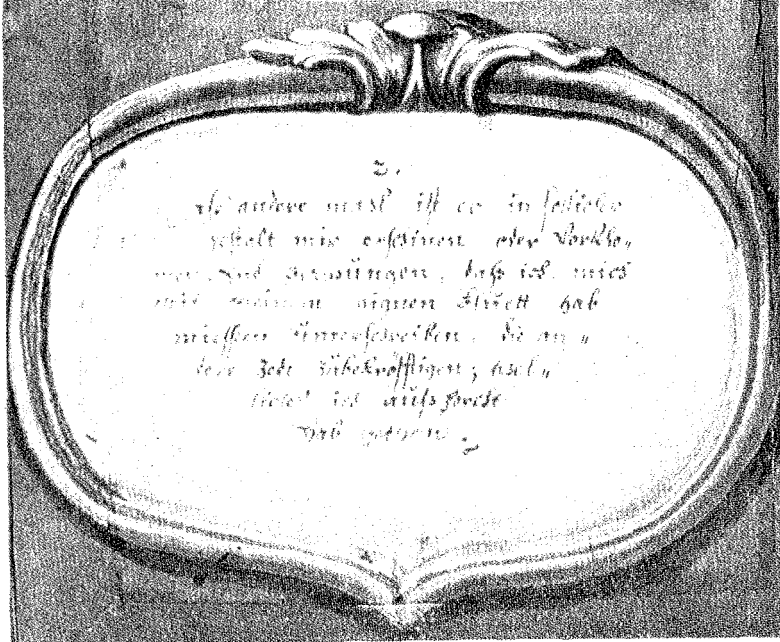 2.
andere mahl ist er in solicher
gestalt mir erschinen oder Vorkho„
men, Und gezwüngen, dass ich mich
mit meinem aignen Bluett hab
miessen Ünterschreiben, die an„
dere Zübekröfftigen; wel„
liches ich auss Forcht
hab gethan